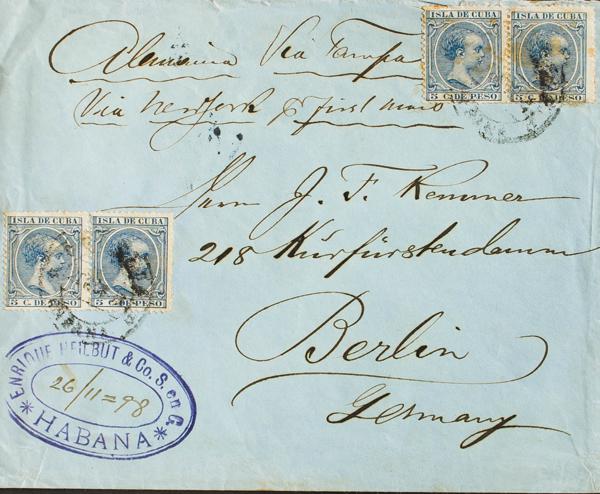 Alemania Via Tampa
Via New York p. first
ISLA DE CUBA
5 C. DE PESO
ISLA DE CUBA
5 C. DE PESO
Herrn J. F. Kemmer
218 Kurfürstendamm
Berlin
Germany
ISLA DE CUBA
5 C. DE PESO
ISLA DE CUBA
5 C. DE PESO
ENRIQUE HEILBUT & Co. S. en C.
26/11=98
HABANA